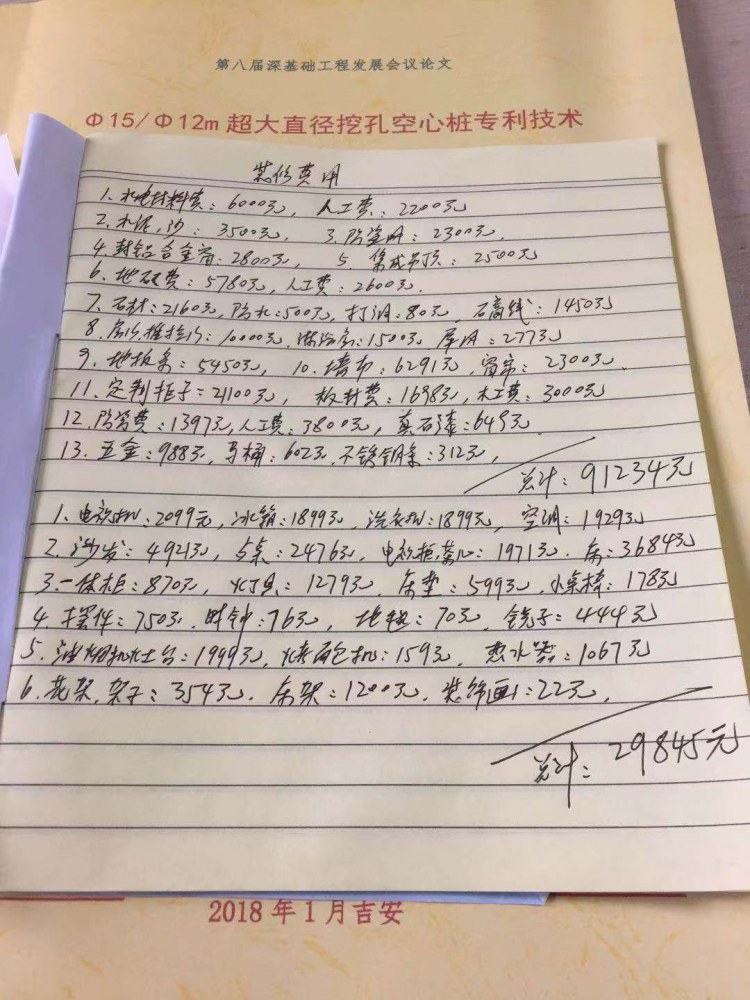 第八届深基础工程发展会议论文
Φ15/Φ12m 超大直径挖孔空心桩专利技术
装修费用
1. 水电材料费：6000元，人工费：2200元
2. 水泥，沙：3500元，3. 防盗网：2300元.
4. 封铝合金窗：2800元，5. 集成吊顶：2500元
6. 地砖费：5780元，人工费：2600元.
7. 石材：2160元，防水：500元，打洞：80元，石膏线：1450元
8. 房门，推拉门：10000元，淋浴房：1500元，2773元
9. 地板条：5450元，10. 墙布：6291元，窗帘：2300元.
11. 定制柜子：21100元，板材费：1698元，木工费：3000元
12. 防盗费：1397元，人工费：3800元，真石漆：649元
13. 五金：988元，马桶：602元，不锈钢条：312元，
总计：91234元
1. 电视机：2099元，冰箱：1899元，洗衣机：1899元，空调：1929元
2. 沙发：4921元，桌：2476元，电视柜，茶几：1971元. 床：3684元
3. 一体柜：870元，灯具：1279元，床垫：599元，小桌椅：178元
4. 摆件：750元，时钟：76元，地毯：70元，镜子：444元
5. 油烟机灶台：1999元，烤面包机：159元，热水器：1067元
6. 花架，架子：354元. 床架：1200元，装饰画：22元，
总计：29845元
2018年1月吉安